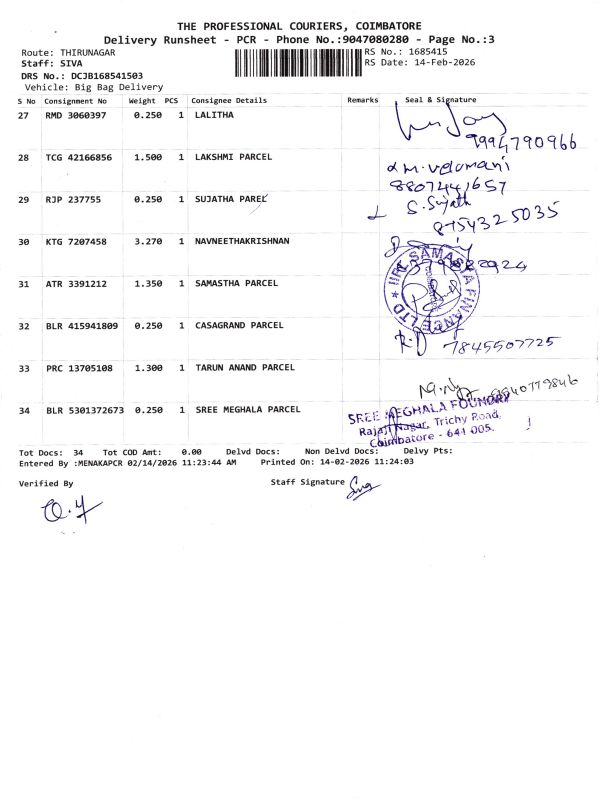 THE PROFESSIONAL COURIERS, COIMBATORE
Delivery Runsheet - PCR - Phone No.:9047080280 - Page No.:3
Route: THIRUNAGAR
RS No.: 1685415
Staff: SIVA
RS Date: 14-Feb-2026
DRS No.: DCJB168541503
Vehicle: Big Bag Delivery
S No Consignment No Weight PCS Consignee Details Remarks Seal & Signature
27 RMD 3060397 0.250 1 LALITHA
9994790966
28 TCG 42166856 1.500 1 LAKSHMI PARCEL
M. Velumani
8807441657
29 RJP 237755 0.250 1 SUJATHA PAREL
S. Sujath
8754325035
30 KTG 7207458 3.270 1 NAVNEETHAKRISHNAN
31 ATR 3391212 1.350 1 SAMASTHA PARCEL
IIFL SAMASTA FINANCE LTD
32 BLR 415941809 0.250 1 CASAGRAND PARCEL
7845507725
33 PRC 13705108 1.300 1 TARUN ANAND PARCEL
9840779846
34 BLR 5301372673 0.250 1 SREE MEGHALA PARCEL
SREE MEGHALA FOUNDRY
Rajaji Nagar, Trichy Road,
Coimbatore - 641 005.
Tot Docs: 34 Tot COD Amt: 0.00 Delvd Docs: Non Delvd Docs: Delvy Pts:
Entered By :MENAKAPCR 02/14/2026 11:23:44 AM Printed On: 14-02-2026 11:24:03
Verified By
Staff Signature